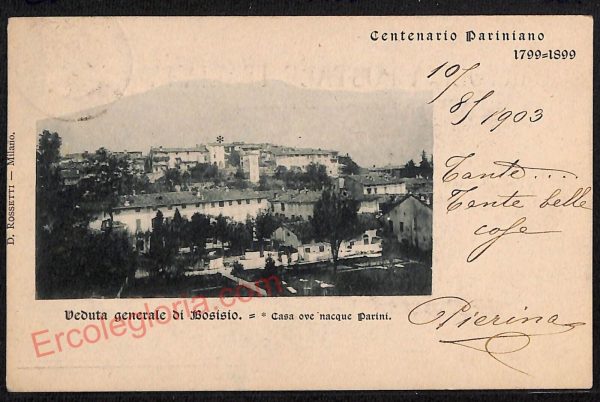 Centenario Pariniano
1799=1899
10/
8/ 1903
Tante...
Tante belle
cose
Pierina
D. ROSSETTI — Milano.
*
Veduta generale di Bosisio. = * Casa ove nacque Parini.
Ercolegloria.com